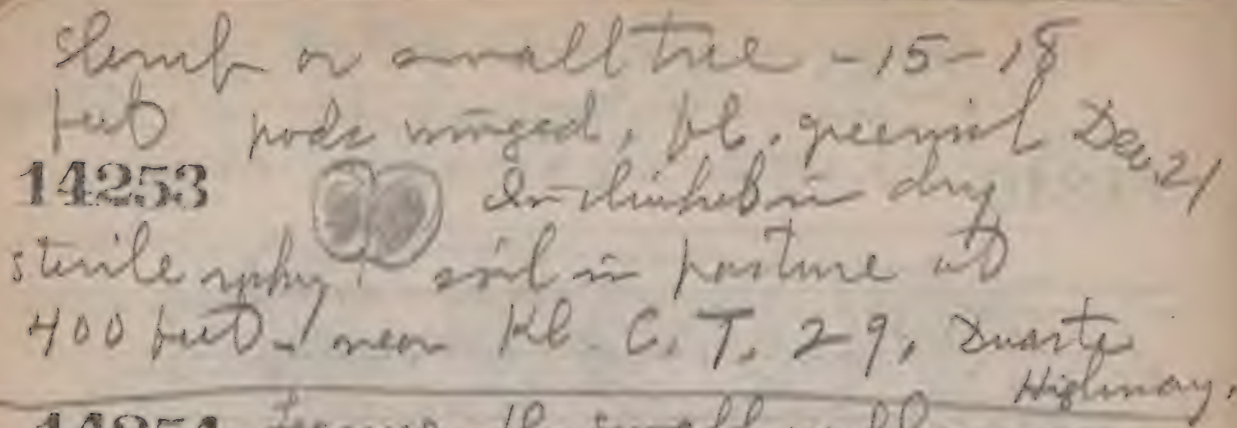 shrub or small tree - 15-18
feet pods winged, fl. greenish Dec. 21
14253 In thicket in dry
sterile soil in pasture at
400 feet - near Kl. C. T. 29, Duarte
Highway.
14254 the small